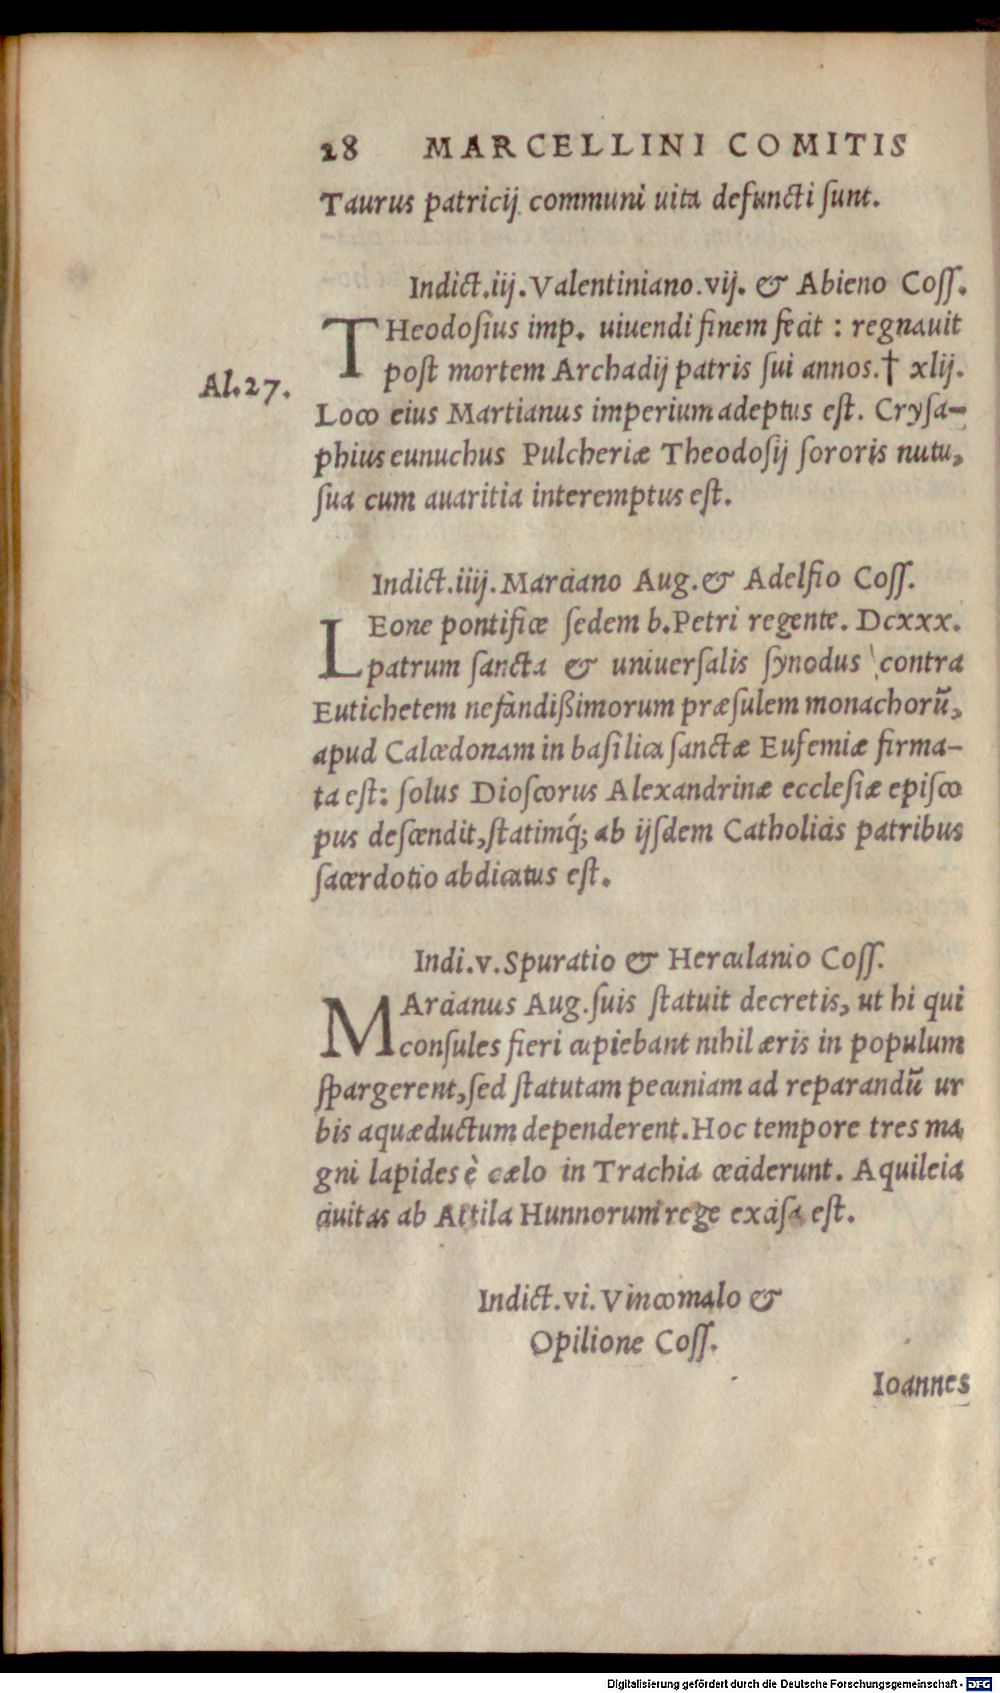 28 MARCELLINI COMITIS
Taurus patricij communi uita defuncti ſunt.
Indict.iij.Valentiniano.vij. & Abieno Coſſ.
THeodoſius imp. uiuendi finem fecit : regnauit
poſt mortem Archadij patris ſui annos.† xlij.
Al.27.
Loco eius Martianus imperium adeptus eſt. Cryſa-
phius eunuchus Pulcheriæ Theodoſij ſororis nutu,
ſua cum auaritia interemptus eſt.
Indict.iiij.Marciano Aug.& Adelfio Coſſ.
LEone pontifice ſedem b.Petri regente. Dcxxx.
patrum ſancta & uniuerſalis ſynodus contra
Eutichetem nefandißimorum præſulem monachorū,
apud Calcedonam in baſilica ſanctæ Eufemiæ firma-
ta eſt: ſolus Dioſcorus Alexandrinæ eccleſiæ epiſco
pus deſcendit,ſtatimq́; ab ijſdem Catholicis patribus
ſacerdotio abdicatus eſt.
Indi.v.Spuratio & Herculanio Coſſ.
MArcianus Aug.ſuis ſtatuit decretis, ut hi qui
conſules fieri cupiebant nihil æris in populum
ſpargerent,ſed ſtatutam pecuniam ad reparandū ur
bis aquæductum dependerent.Hoc tempore tres ma
gni lapides è cælo in Trachia ceciderunt. Aquileia
ciuitas ab Attila Hunnorum rege exciſa eſt.
Indict.vi.Vincomalo &
Opilione Coſſ.
Ioannes
Digitalisierung gefördert durch die Deutsche Forschungsgemeinschaft - DFG